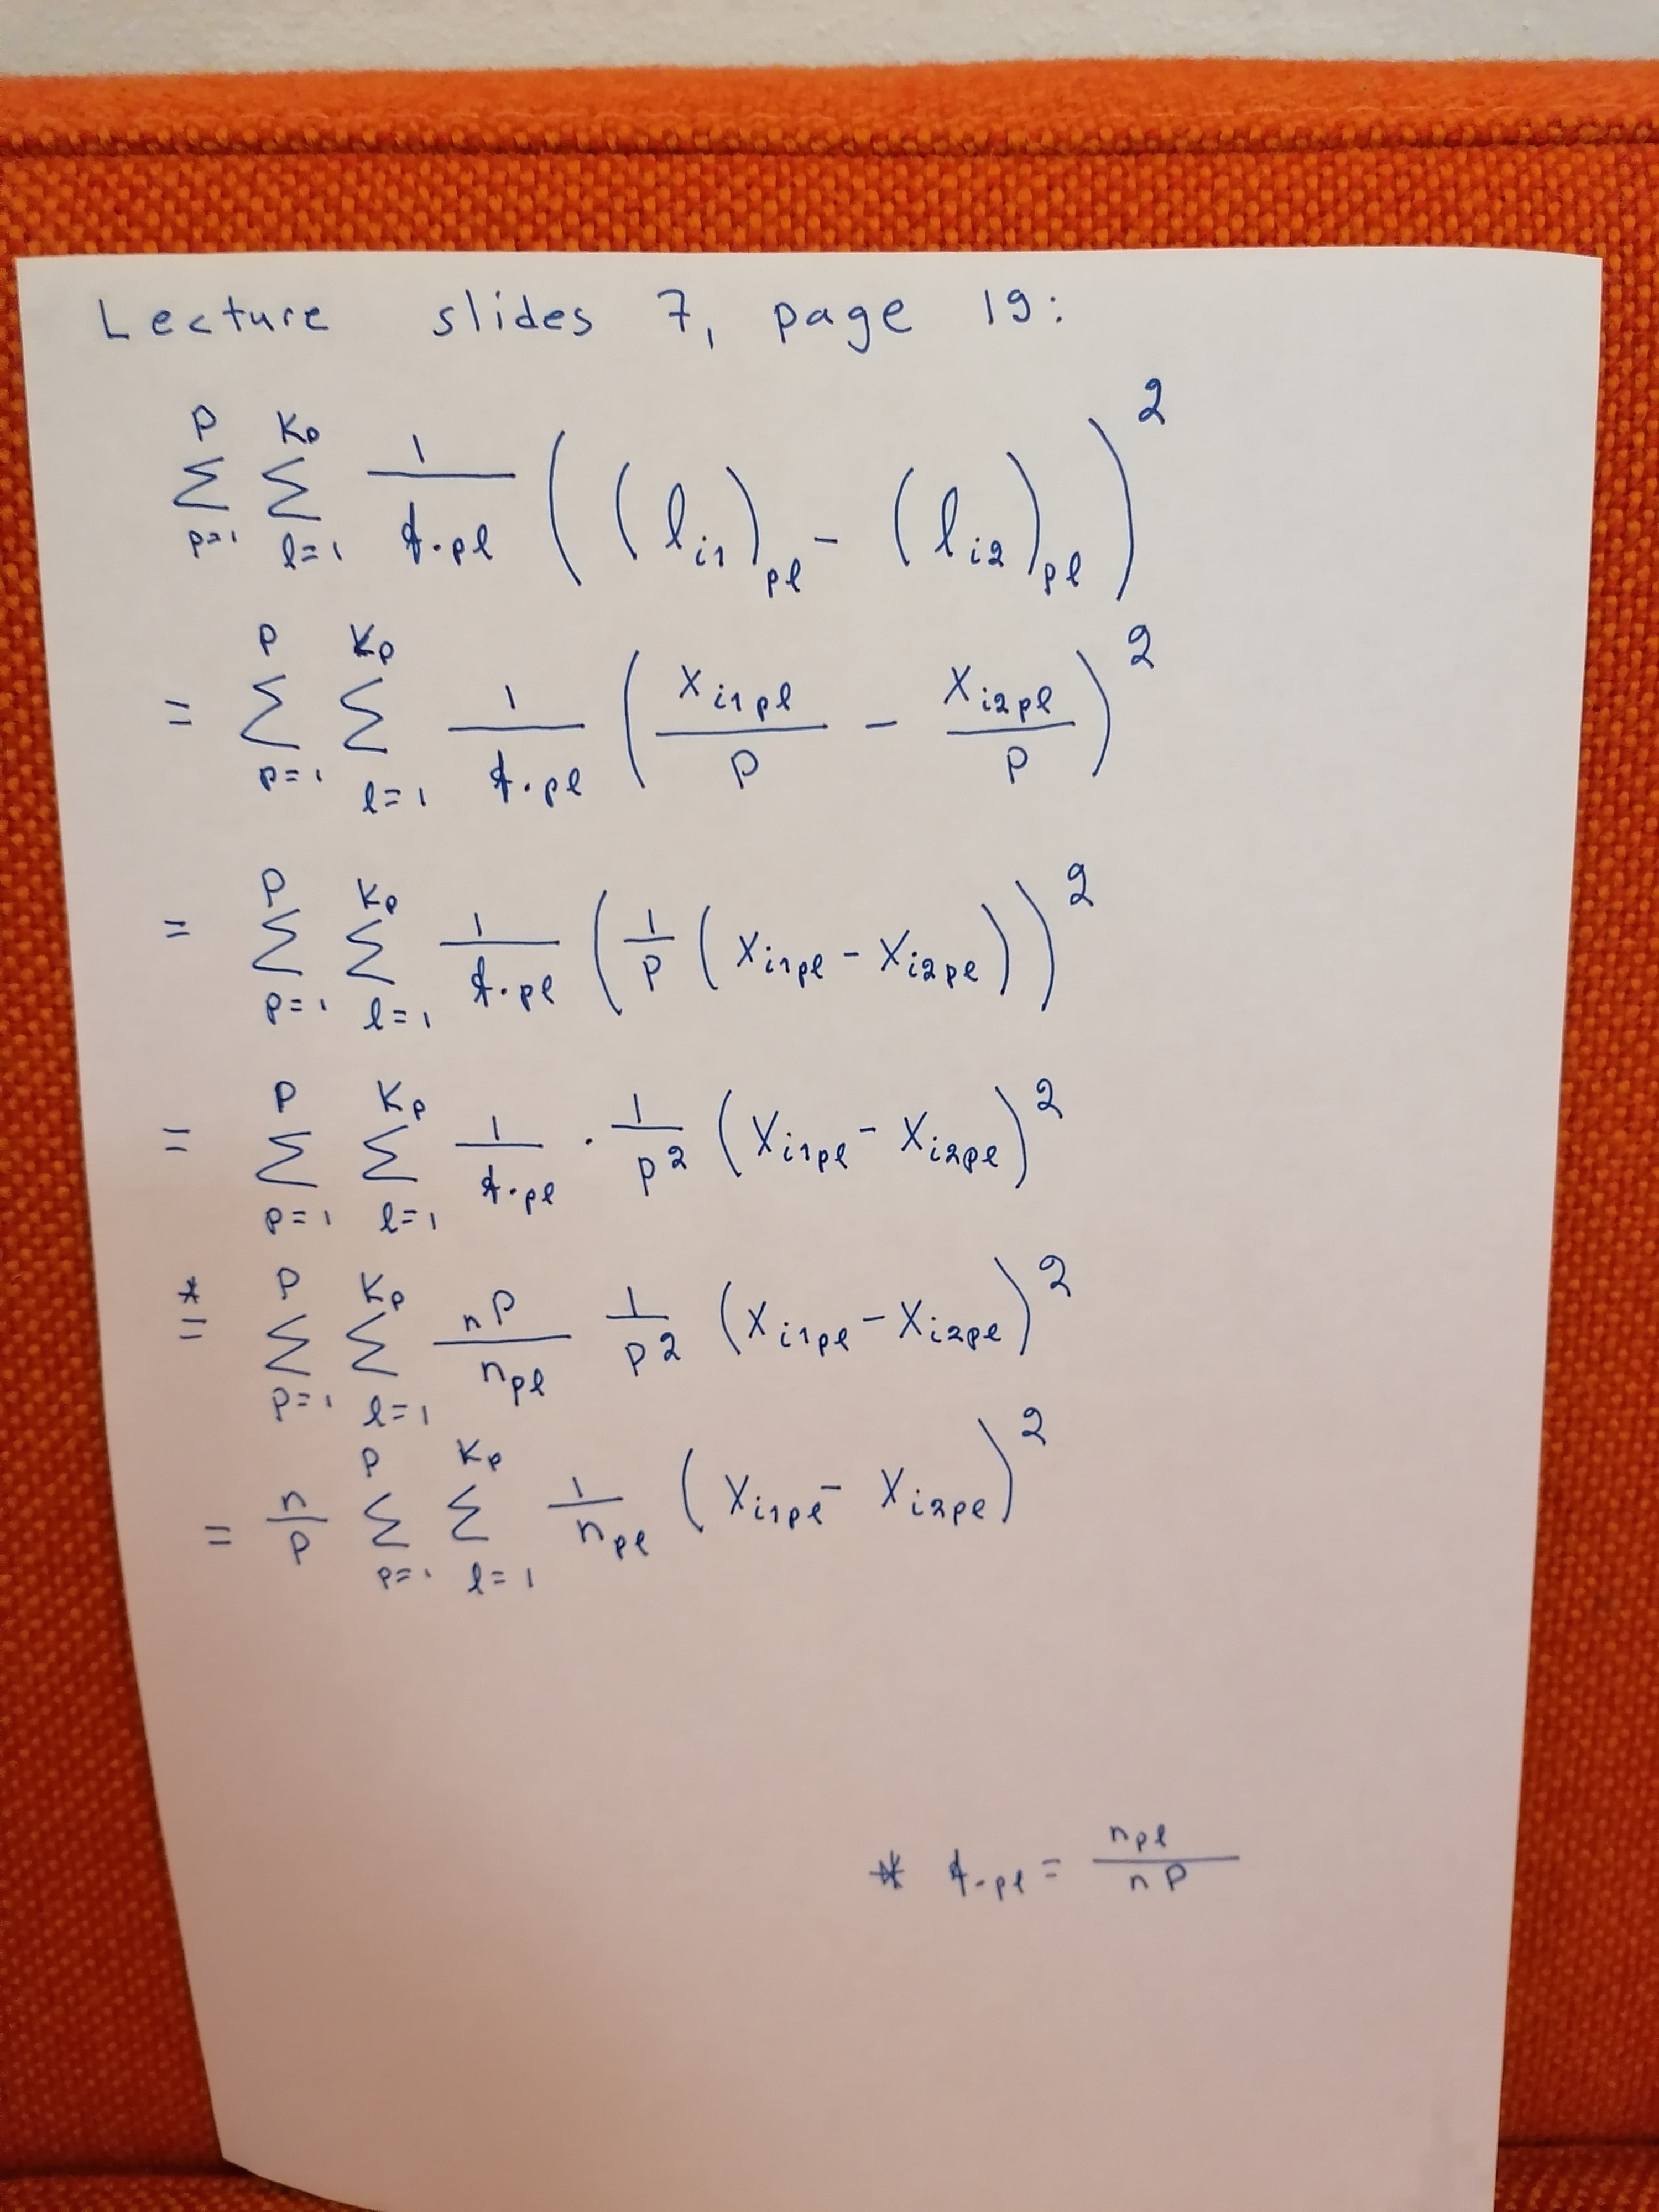 Lecture slides 7, page 19:
$\sum_{p=1}^{P} \sum_{l=1}^{K_p} \frac{1}{f_{\cdot pl}} \left( (l_{i1})_{pl} - (l_{i2})_{pl} \right)^2$
$= \sum_{p=1}^{P} \sum_{l=1}^{K_p} \frac{1}{f_{\cdot pl}} \left( \frac{x_{i1pl}}{P} - \frac{x_{i2pl}}{P} \right)^2$
$= \sum_{p=1}^{P} \sum_{l=1}^{K_p} \frac{1}{f_{\cdot pl}} \left( \frac{1}{P} \left( x_{i1pl} - x_{i2pl} \right) \right)^2$
$= \sum_{p=1}^{P} \sum_{l=1}^{K_p} \frac{1}{f_{\cdot pl}} \cdot \frac{1}{P^2} \left( x_{i1pl} - x_{i2pl} \right)^2$
$\overset{*}{=} \sum_{p=1}^{P} \sum_{l=1}^{K_p} \frac{nP}{n_{pl}} \frac{1}{P^2} \left( x_{i1pl} - x_{i2pl} \right)^2$
$= \frac{n}{P} \sum_{p=1}^{P} \sum_{l=1}^{K_p} \frac{1}{n_{pl}} \left( x_{i1pl} - x_{i2pl} \right)^2$
$* \; f_{\cdot pl} = \frac{n_{pl}}{nP}$